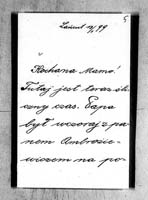 5
Kochana Mamo!
Tutaj jest teraz śli
czny czas. Papa
był wczoraj z pa
nem Ambrozie
wiczem na po-